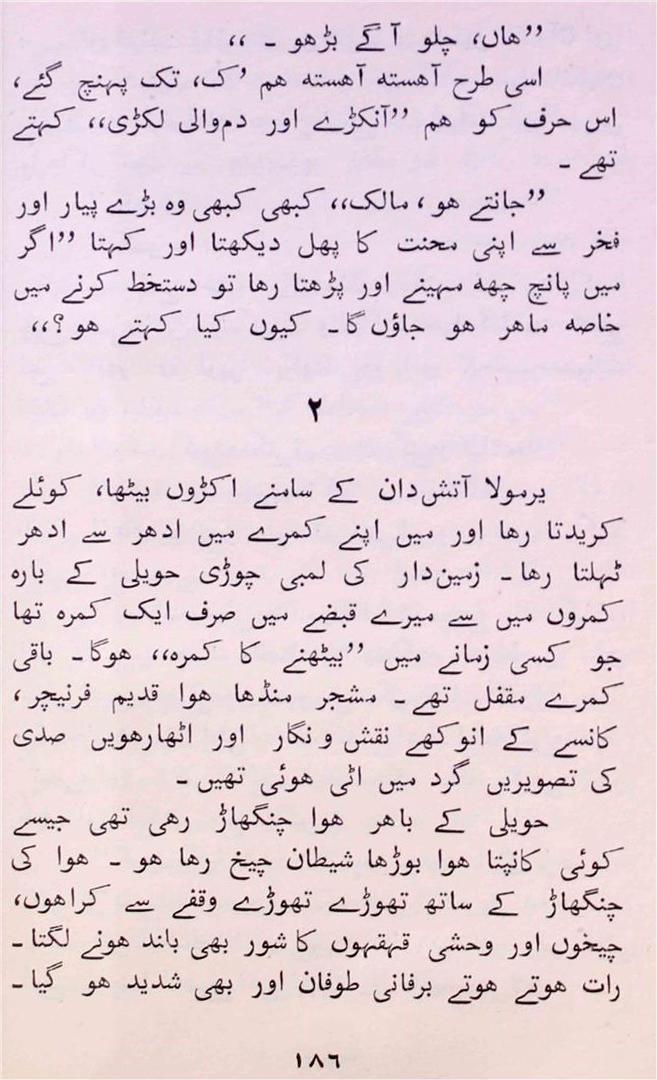 ’’ھاں، چلو آگے بڑھو ۔ ‘‘
اسی طرح آھستہ آھستہ ھم ’ک‘ تک پہنچ گئے،
اس حرف کو ھم ’’آنکڑے اور دم‌والی لکڑی‘‘ کہتے
تھے ۔
’’جانتے ھو، مالک‘‘ کبھی کبھی وہ بڑے پیار اور
فخر سے اپنی محنت کا پھل دیکھتا اور کہتا ’’اگر
میں پانچ چھہ مہینے اور پڑھتا رھا تو دستخط کرنے میں
خاصہ ماھر ھو جاؤں گا۔ کیوں کیا کہتے ھو؟‘‘
۲
یرمولا آتش‌دان کے سامنے اکڑوں بیٹھا، کوئلے
کریدتا رھا اور میں اپنے کمرے میں ادھر سے ادھر
ٹہلتا رھا۔ زمین‌دار کی لمبی چوڑی حویلی کے بارہ
کمروں میں سے میرے قبضے میں صرف ایک کمرہ تھا
جو کسی زمانے میں ’’بیٹھنے کا کمرہ‘‘ ھوگا۔ باقی
کمرے مقفل تھے ۔ مشجر منڈھا ھوا قدیم فرنیچر،
کانسے کے انوکھے نقش و نگار اور اٹھارھویں صدی
کی تصویریں گرد میں اٹی ھوئی تھیں ۔
حویلی کے باھر ھوا چنگھاڑ رھی تھی جیسے
کوئی کانپتا ھوا بوڑھا شیطان چیخ رھا ھو ۔ ھوا کی
چنگھاڑ کے ساتھ تھوڑے تھوڑے وقفے سے کراھوں،
چیخوں اور وحشی قہقہوں کا شور بھی بلند ھونے لگتا۔
رات ھوتے ھوتے برفانی طوفان اور بھی شدید ھو گیا۔
۱۸۶